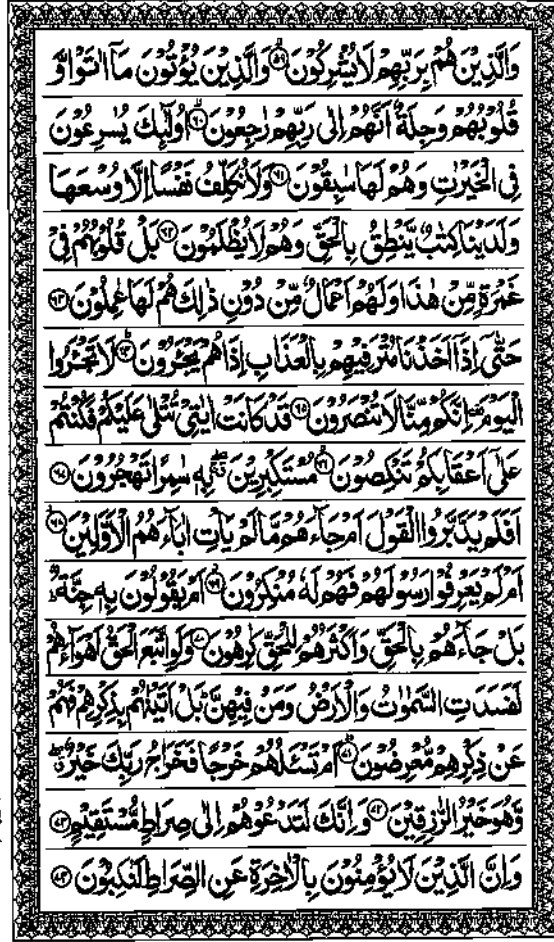 وَالَّذِيۡنَ هُمۡ بِرَبِّهِمۡ لَا يُشۡرِكُوۡنَ ۙ‏﴿۵۹﴾ وَالَّذِيۡنَ يُؤۡتُوۡنَ مَاۤ اٰتَوْا وَّ
قُلُوۡبُهُمۡ وَجِلَةٌ اَنَّهُمۡ اِلٰى رَبِّهِمۡ رٰجِعُوۡنَ ۙ‏﴿۶۰﴾ اُولٰٓٮِٕكَ يُسٰرِعُوۡنَ
فِى الۡخَيۡرٰتِ وَهُمۡ لَهَا سٰبِقُوۡنَ‏﴿۶۱﴾ وَلَا نُـكَلِّفُ نَفۡسًا اِلَّا وُسۡعَهَا
وَلَدَيۡنَا كِتٰبٌ يَّـنۡطِقُ بِالۡحَـقِّ وَهُمۡ لَا يُظۡلَمُوۡنَ‏﴿۶۲﴾ بَلۡ قُلُوۡبُهُمۡ فِىۡ
غَمۡرَةٍ مِّنۡ هٰذَا وَلَهُمۡ اَعۡمَالٌ مِّنۡ دُوۡنِ ذٰلِكَ هُمۡ لَهَا عٰمِلُوۡنَ‏﴿۶۳﴾
حَتّٰٓى اِذَاۤ اَخَذۡنَا مُتۡـرَفِيۡهِمۡ بِالۡعَذَابِ اِذَا هُمۡ يَجۡـَٔــرُوۡنَؕ‏﴿۶۴﴾ لَا تَجۡـَٔــرُوا
الۡيَوۡمَ‌ اِنَّكُمۡ مِّنَّا لَا تُنۡصَرُوۡنَ‏﴿۶۵﴾ قَدۡ كَانَتۡ اٰيٰتِىۡ تُتۡلٰى عَلَيۡكُمۡ فَكُنۡتُمۡ
عَلٰٓى اَعۡقَابِكُمۡ تَنۡكِصُوۡنَۙ‏﴿۶۶﴾ مُسۡتَكۡبِرِيۡنَ ‌ۖ بِهٖ سٰمِرًا تَهۡجُرُوۡنَ‏﴿۶۷﴾
اَفَلَمۡ يَدَّبَّرُوا الۡقَوۡلَ اَمۡ جَآءَهُمۡ مَّا لَمۡ يَاۡتِ اٰبَآءَهُمُ الۡاَوَّلِيۡنَ‏﴿۶۸﴾
اَمۡ لَمۡ يَعۡرِفُوۡا رَسُوۡلَهُمۡ فَهُمۡ لَهٗ مُنۡكِرُوۡنَ‏﴿۶۹﴾ اَمۡ يَـقُوۡلُوۡنَ بِهٖ جِنَّةٌ‌  ؕ
بَلۡ جَآءَهُمۡ بِالۡحَـقِّ وَاَكۡثَرُهُمۡ لِلۡحَقِّ كٰرِهُوۡنَ‏﴿۷۰﴾ وَلَوِ اتَّبَعَ الۡحَـقُّ اَهۡوَآءَهُمۡ
لَفَسَدَتِ السَّمٰوٰتُ وَالۡاَرۡضُ وَمَنۡ فِيۡهِنَّ‌ؕ بَلۡ اَتَيۡنٰهُمۡ بِذِكۡرِهِمۡ فَهُمۡ
عَنۡ ذِكۡرِهِمۡ مُّعۡرِضُوۡنَؕ‏﴿۷۱﴾ اَمۡ تَسۡـَٔـلُهُمۡ خَرۡجًا فَخَرَاجُ رَبِّكَ خَيۡرٌ‌ ۖ
وَّهُوَ خَيۡرُ الرّٰزِقِيۡنَ‏﴿۷۲﴾ وَاِنَّكَ لَـتَدۡعُوۡهُمۡ اِلٰى صِرَاطٍ مُّسۡتَقِيۡمٍ‏﴿۷۳﴾
وَاِنَّ الَّذِيۡنَ لَا يُؤۡمِنُوۡنَ بِالۡاٰخِرَةِ عَنِ الصِّرَاطِ لَـنٰكِبُوۡنَ‏﴿۷۴﴾